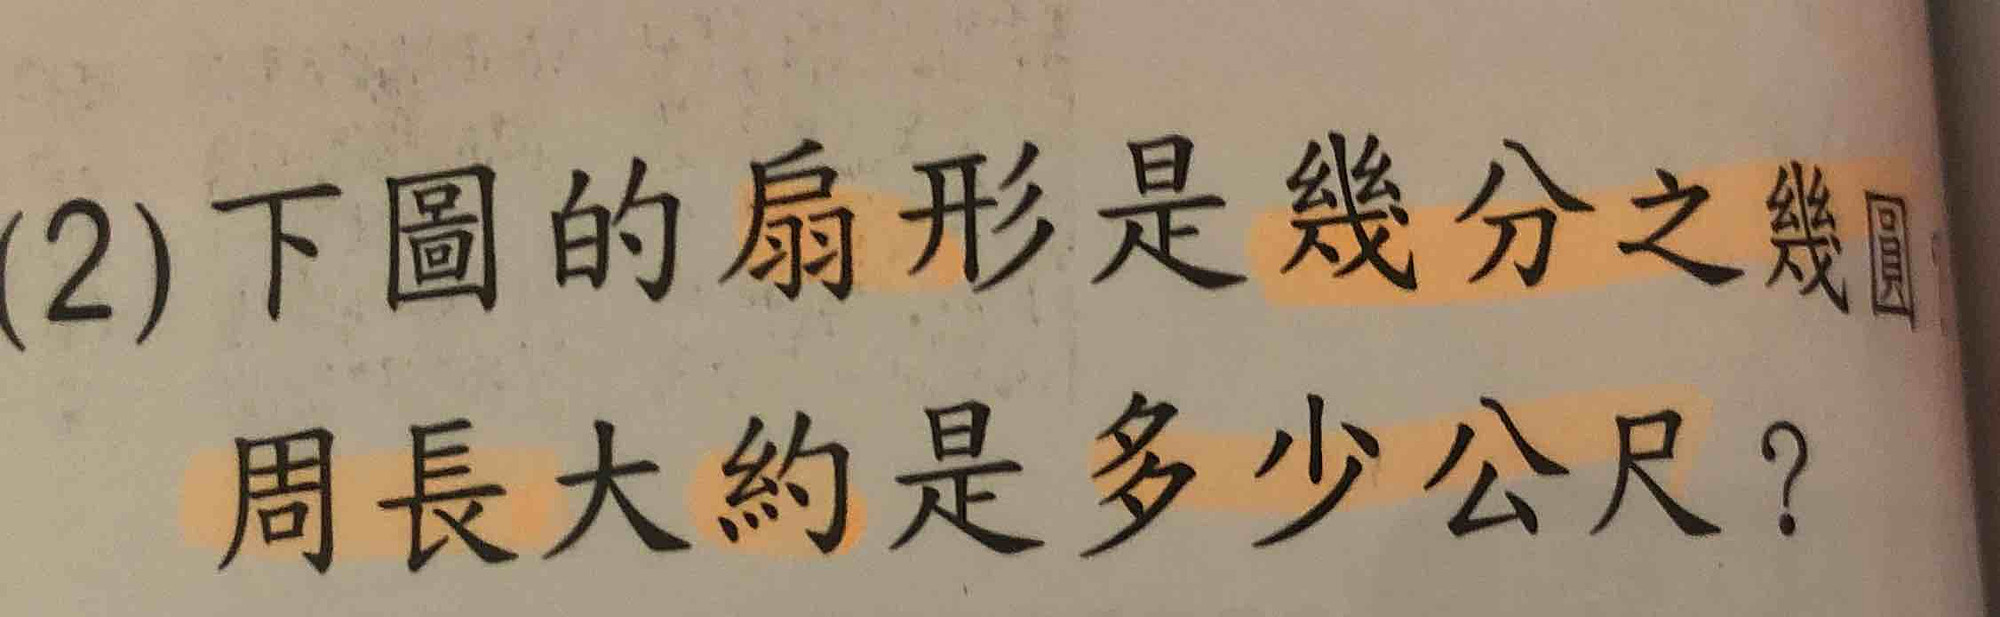 (2)下圖的扇形是幾分之幾圓
周長大約是多少公尺？